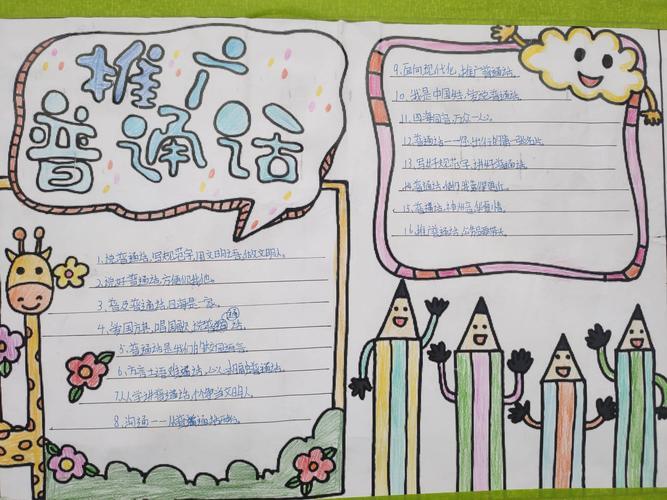 推广
普通话
1.说普通话,写规范字,用文明语,做文明人。
2.说好普通话,方便你我他。
3.普及普通话,四海是一家。
4.爱国旗,唱国歌,说普通话。
5.普通话是我们的校园语言。
6.方言土语难通话,心心相印普通话。
7.人人学讲普通话,个个争当文明人。
8.沟通——从普通话开始。
9.面向现代化,推广普通话。
10.我是中国娃,爱说普通话。
11.四海同音,万众一心。
12.普通话——你我的第一张名片。
13.写好规范字,讲好普通话。
14.普通话,
15.普通话,神州音,华夏情。
16.推广普通话,